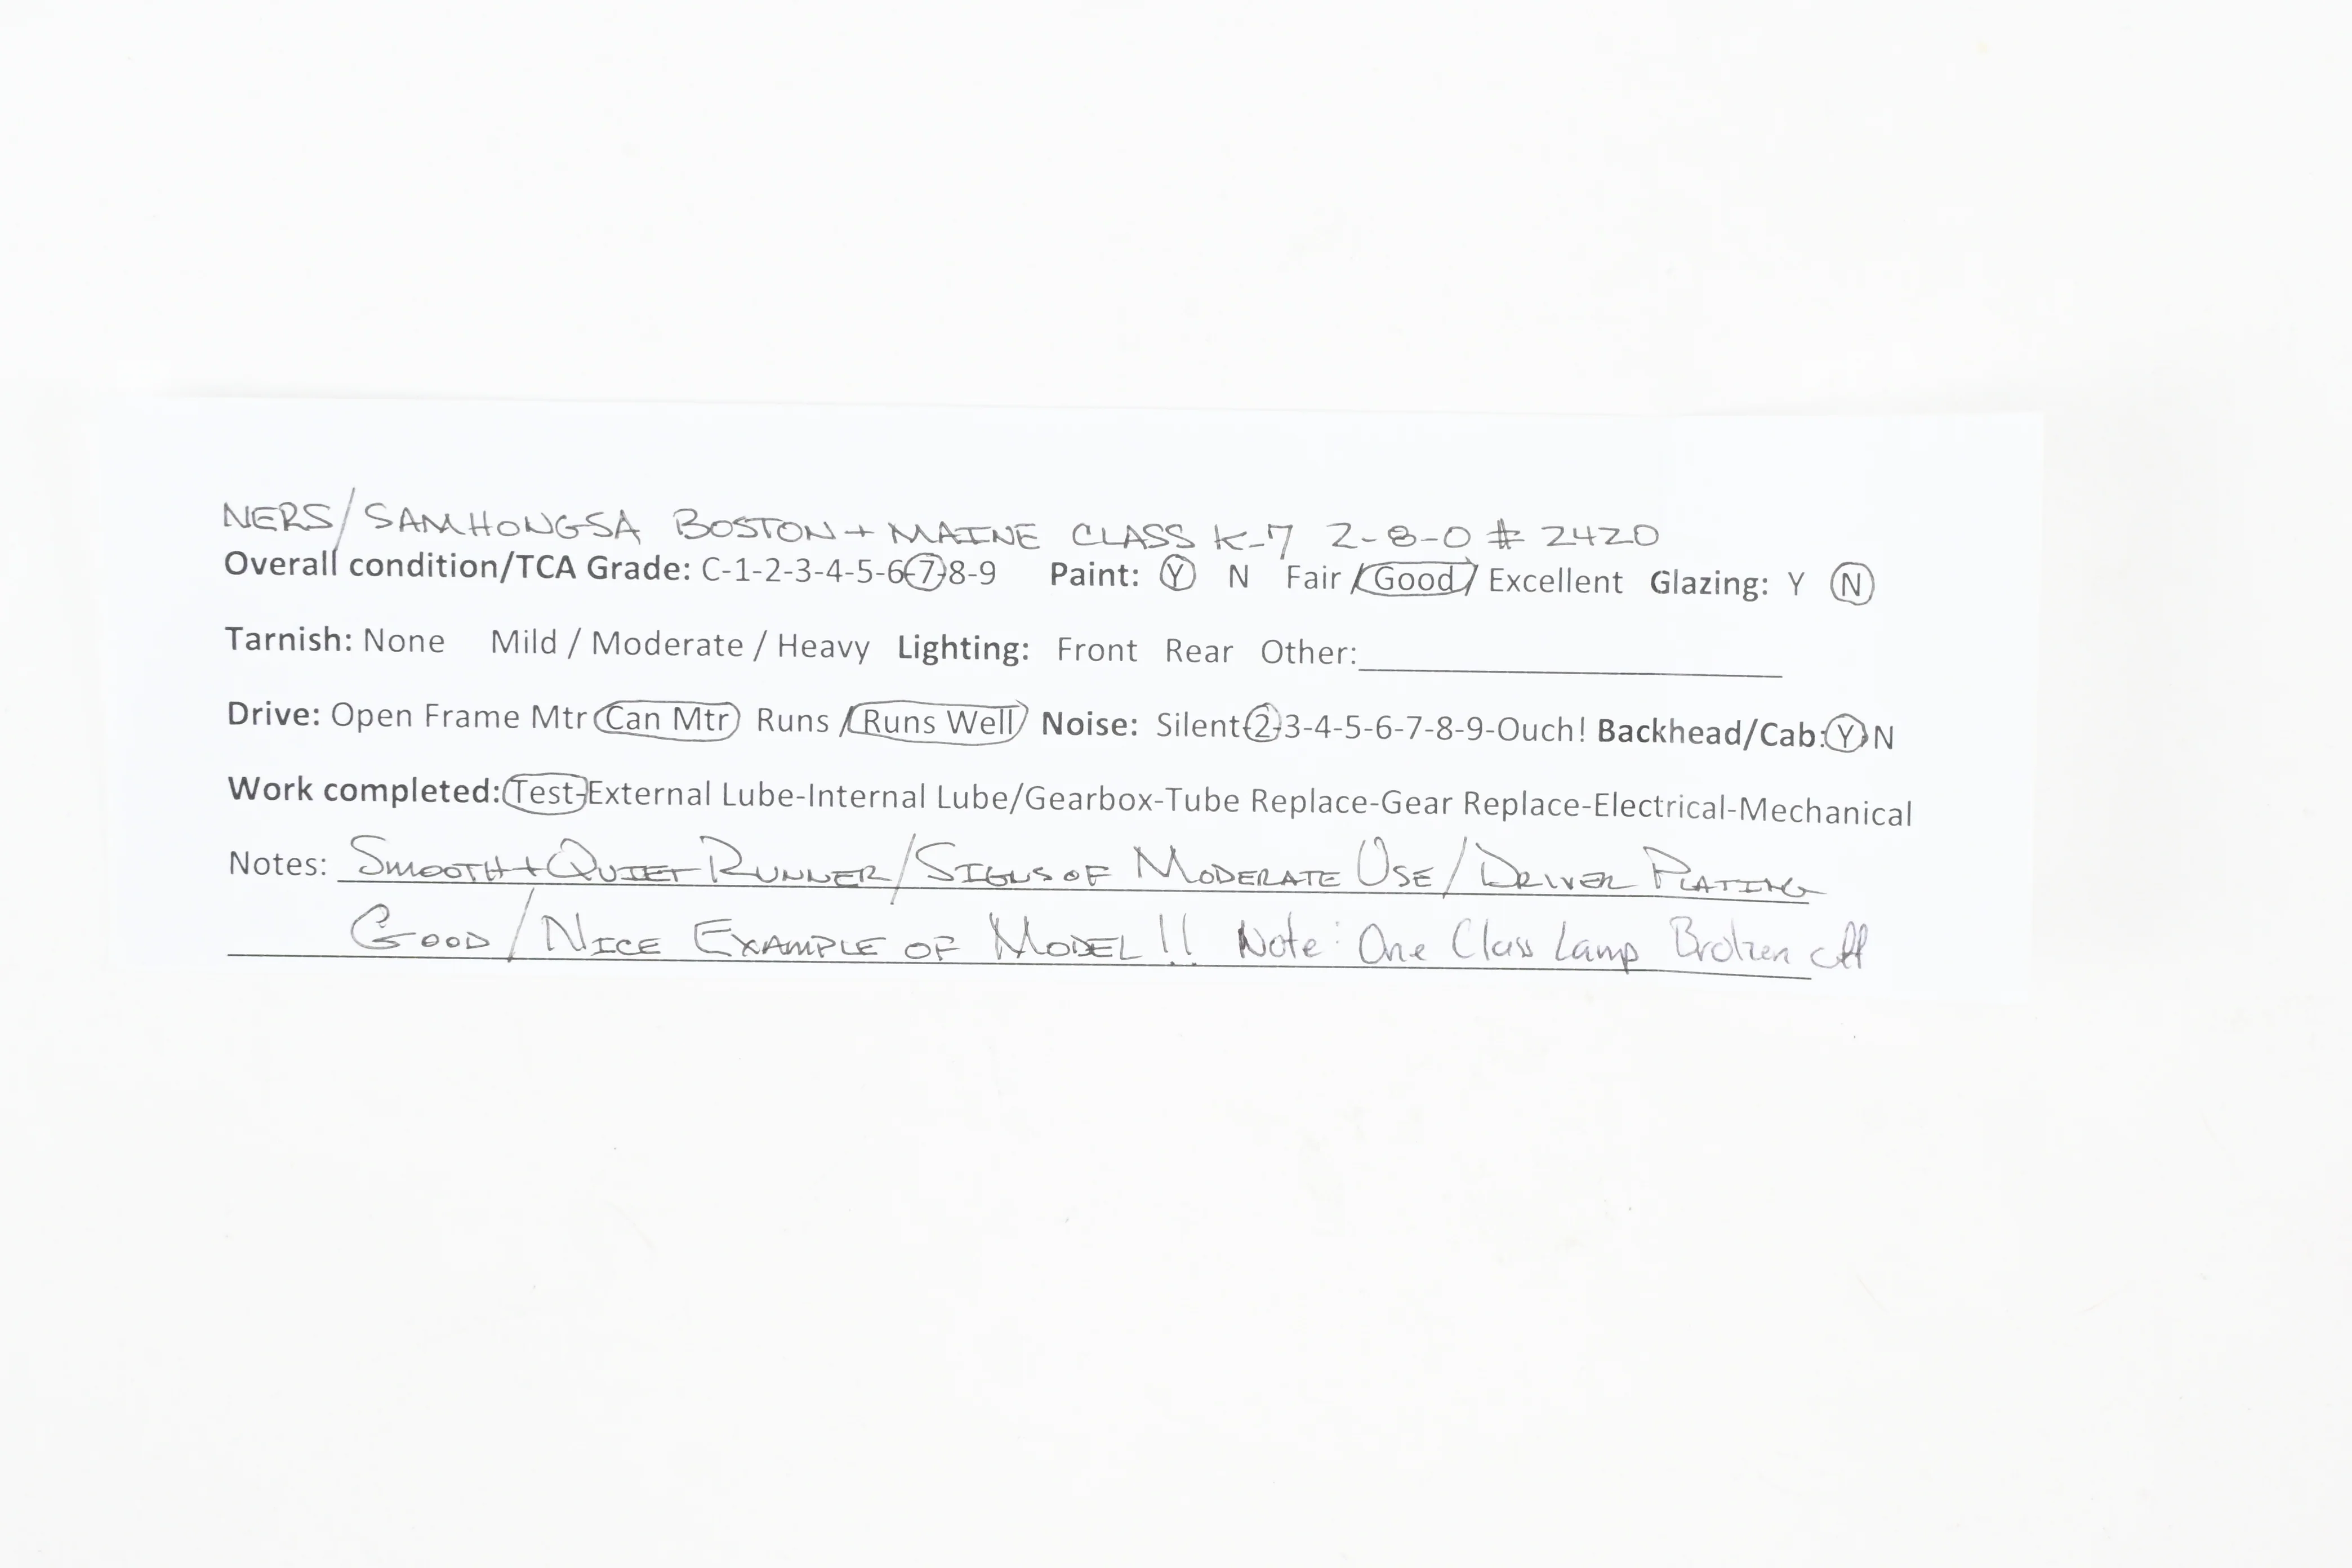 NERS/SAMHONGSA BOSTON + MAINE CLASS K-7 2-8-0 # 2420
Overall condition/TCA Grade: C-1-2-3-4-5-6-7-8-9 Paint: Y N Fair / Good / Excellent Glazing: Y N
Tarnish: None Mild / Moderate / Heavy Lighting: Front Rear Other:
Drive: Open Frame Mtr Can Mtr Runs / Runs Well Noise: Silent-2-3-4-5-6-7-8-9-Ouch! Backhead/Cab: Y N
Work completed: Test-External Lube-Internal Lube/Gearbox-Tube Replace-Gear Replace-Electrical-Mechanical
Notes: SMOOTH + QUIET RUNNER / SIGNS OF MODERATE USE / DRIVER PLATING
GOOD / NICE EXAMPLE OF MODEL!! Note: One Class Lamp Broken off